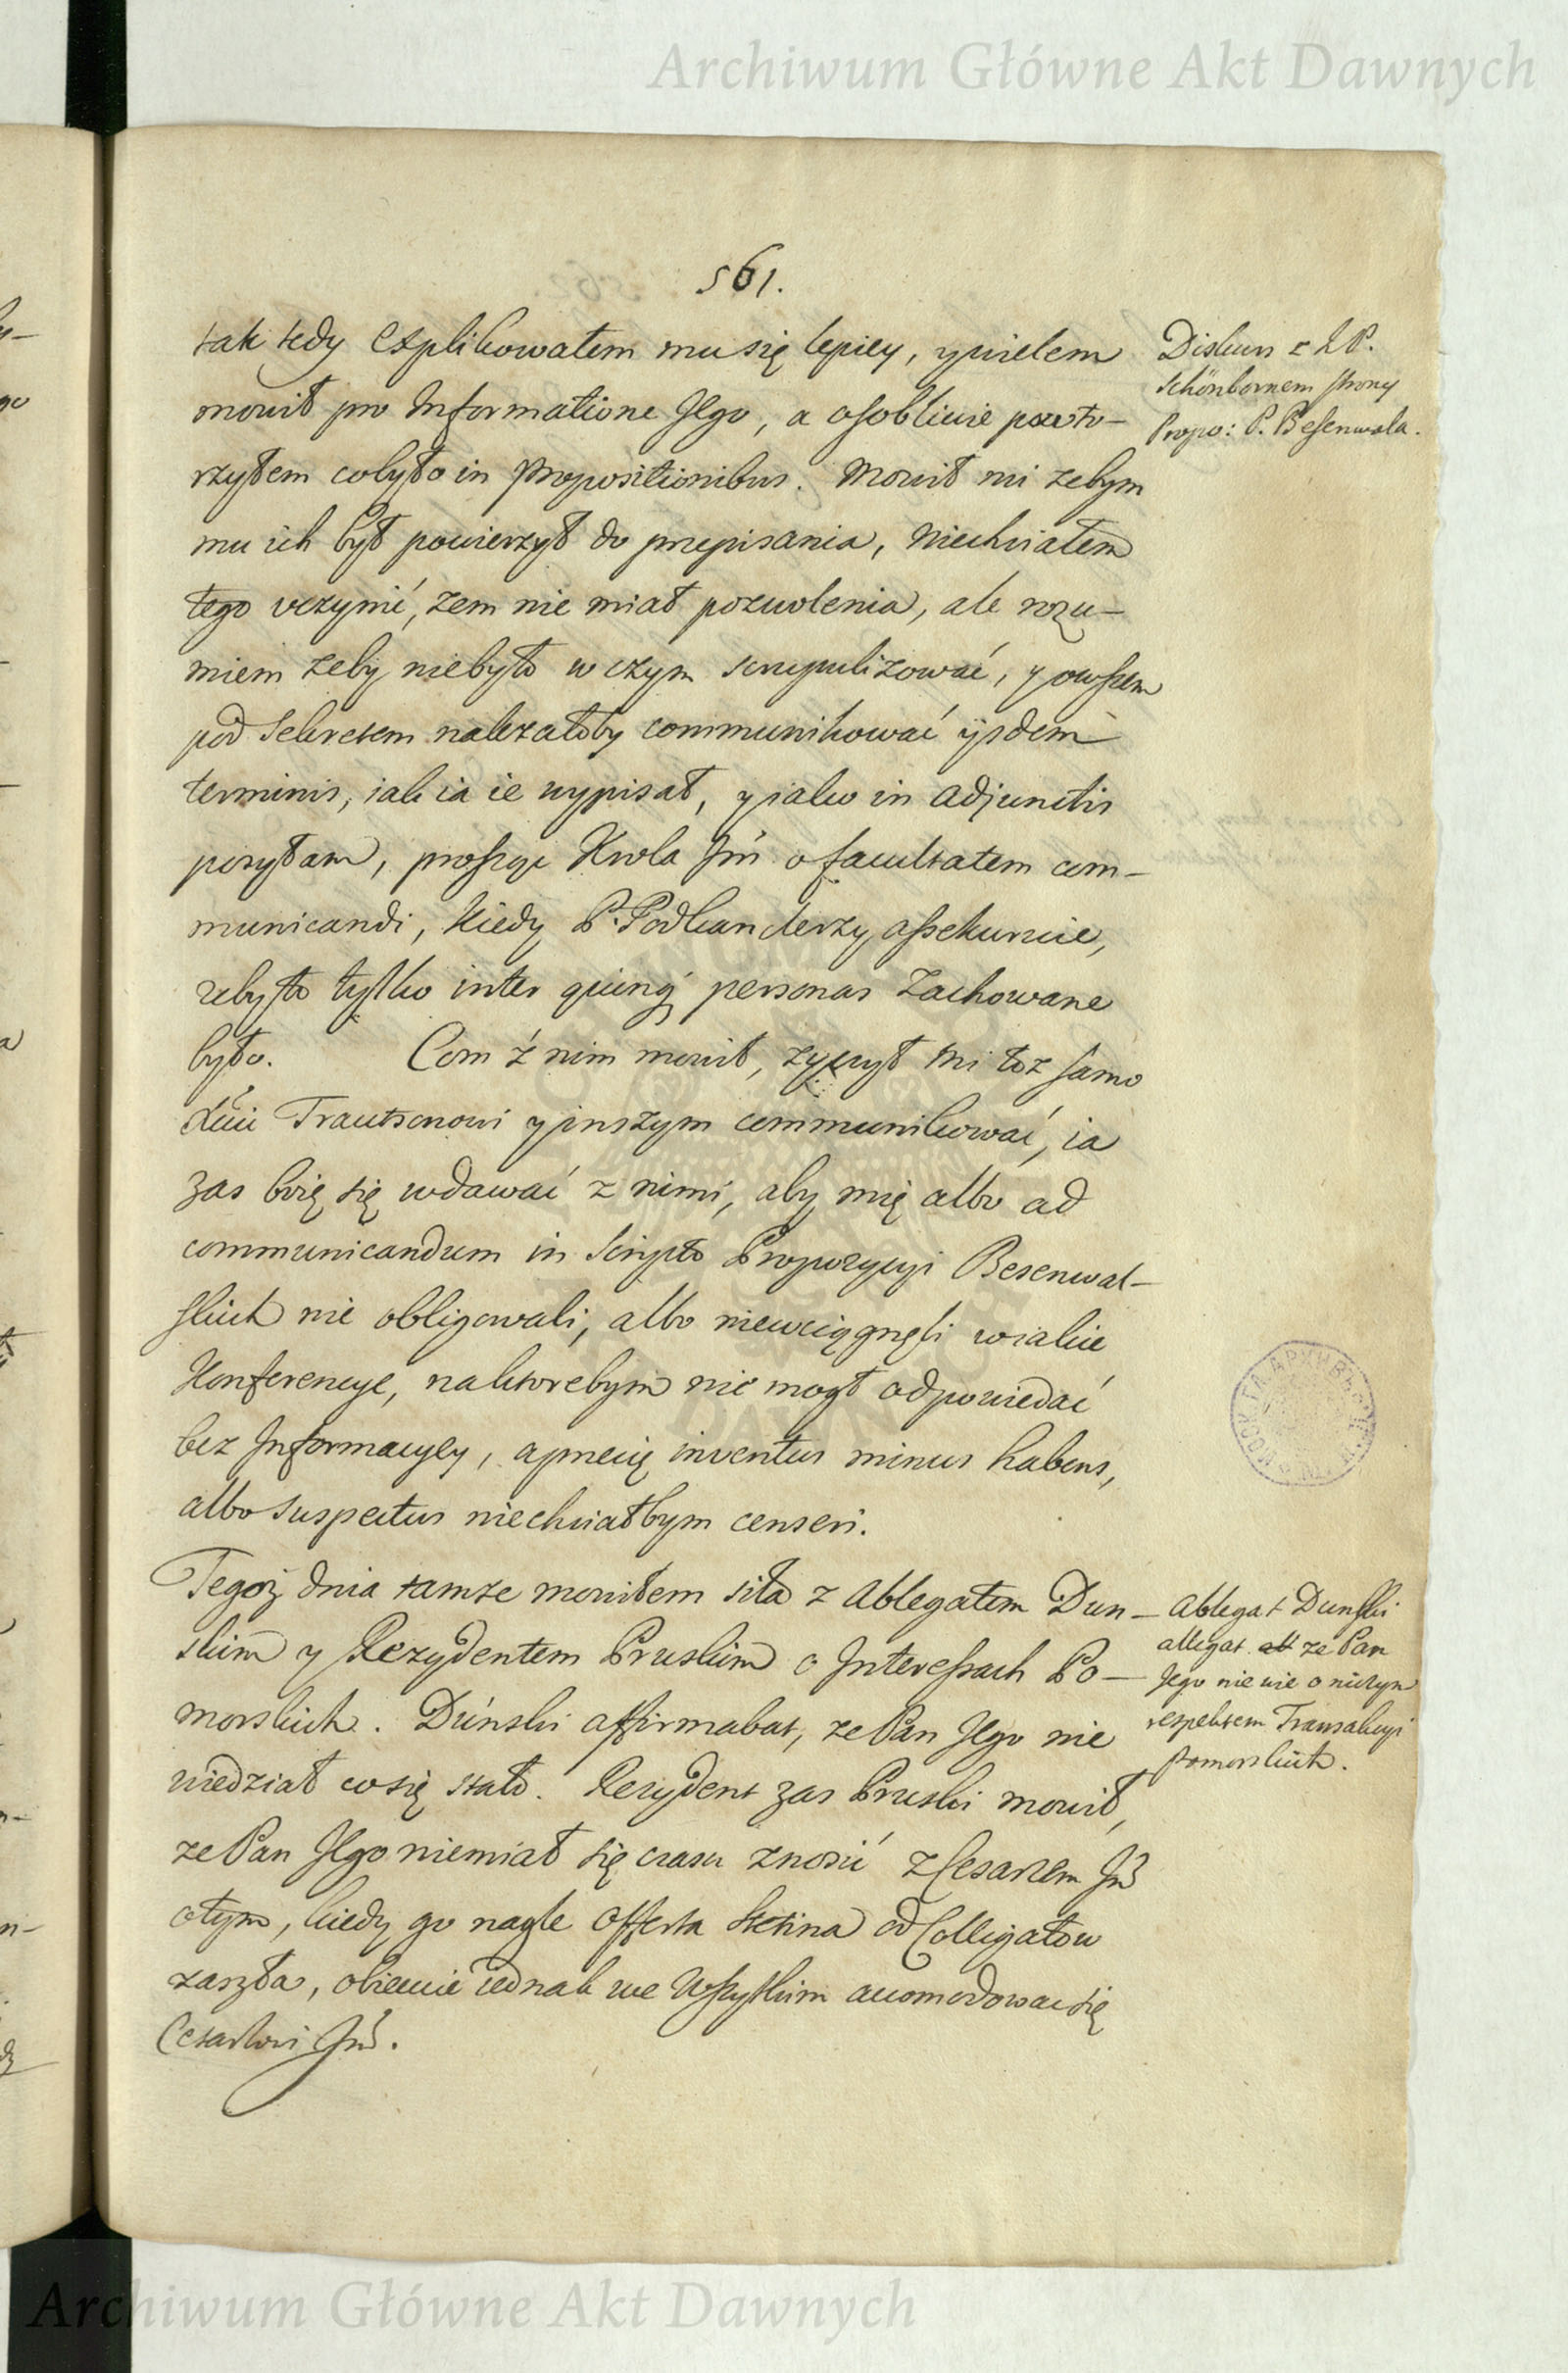 Archiwum Główne Akt Dawnych
561.
tak tedy explikowałem mu się lepiey, y wielem
mowił pro Informatione Jego, a osobliwie powto-
rzyłem cobyło in Propositionibus. Mowił mi zebym
mu ich był powierzył do przepisania, Niechciałem
tego uczynić, zem nie miał pozwolenia, ale rozu-
miem zeby niebyło w czym scrupulizować, y owszem
pod Sekretem nalezałoby communikować ijsdem
terminis, iak ia ie wypisał, y iako in Adjunctis
posyłam, proszę Krola Jm̃ o facultatem com-
municandi, kiedy P. Podkanclerzy assekuruie,
zeby to tylko inter quinq personas zachowane
było. Com z nim mowił, zyczył mi toz samo
Trautsonowi y inszym communikować, ia
zas boię się wdawać z nimi, aby mię albo ad
communicandum in Scripto Propozycyi Besenwal-
skich nie obligowali, albo niewciągnęli w iakie
Konferencye, naktorebym nie mogł odpowiedać
bez Informacyey, a przecię inventus minus habens,
albo suspectus niechciałbym censeri.
Tegoż dnia tamze mowiłem siła z Ablegatem Dun-
skim y Rezydentem Pruskim o Interessach Po-
morskich. Dúnski affirmabat, ze Pan Jego nie
wiedział co się stało. Rezydent zas Pruski mowił,
ze Pan Jego niemiał się czasu znosić z Cesarzem Jm̃
otym, kiedy go nagle offerta Stetina od Colligatow
zaszła, obiecuie iednak we wszytkim accomodować się
Cesarzowi Jm̃.
Diskurs z X P.
Schönbornem strony
Propo: P. Besenwala.
Ablegat Dunski
allegat ze Pan
Jego nie wie o niczym
respektem Transakcyi
Pomorskich.
Archiwum Główne Akt Dawnych